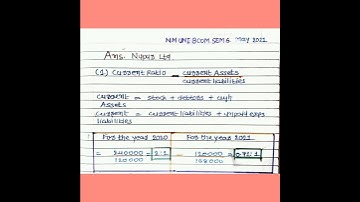 NMUNI BCOM SEM 6 May 2021
Ans. Nupur Ltd
(1) Current Ratio = Current Assets
Current liabilities
Current Assets = Stock + debtors + cash
Current liabilities = Current liabilities + unpaid exps
For the year 2020 For the year 2021
= 240000 = 2:1 = 120000 = 0.71:1
120000 168000